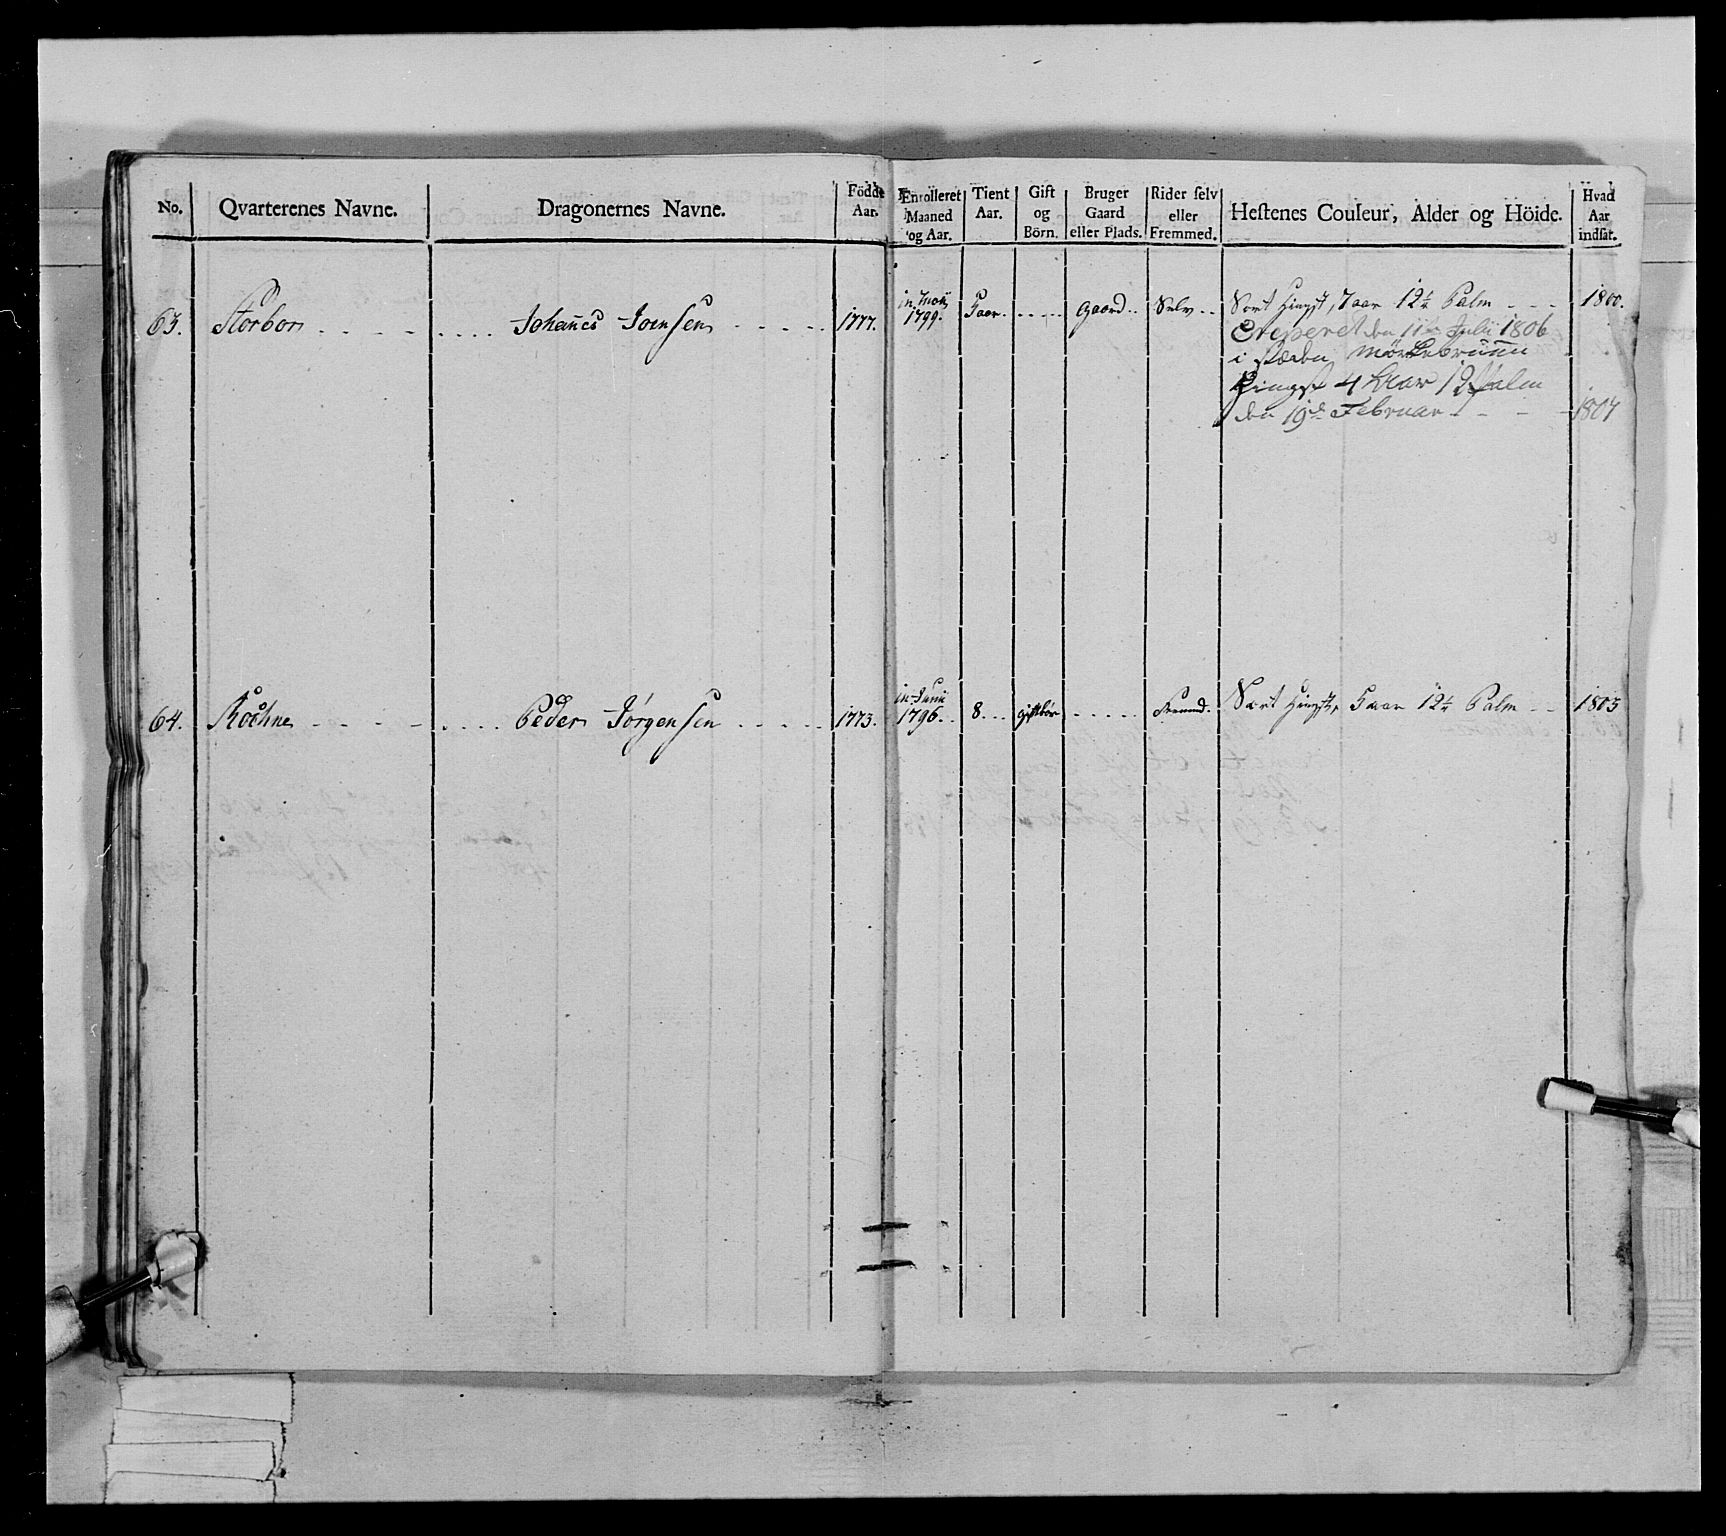 No. Qvarterenes Navne. Dragonernes Navne. Födde Aar. Enrolleret Maaned og Aar. Tient Aar. Gift og Börn. Bruger Gaard eller Plads. Rider selv eller Fremmed. Hestenes Couleur, Alder og Höide. Hvad Aar indsat.
63. Storbon Johañes Joensen 1777. in Maii 1799. 5 aar Gaard Selv Sort Hingst, 7 aar 12½ Palm 1800.
den 11te Julii 1806
i stæden Mørkebruun
Hingst 4 Aar 12 Palm
den 19de Februar 1807
64. Peder Jörgensen 1773. in Junii 1796. 8 Fremmd. Sort Hingst, 5 aar 12½ Palm 1803